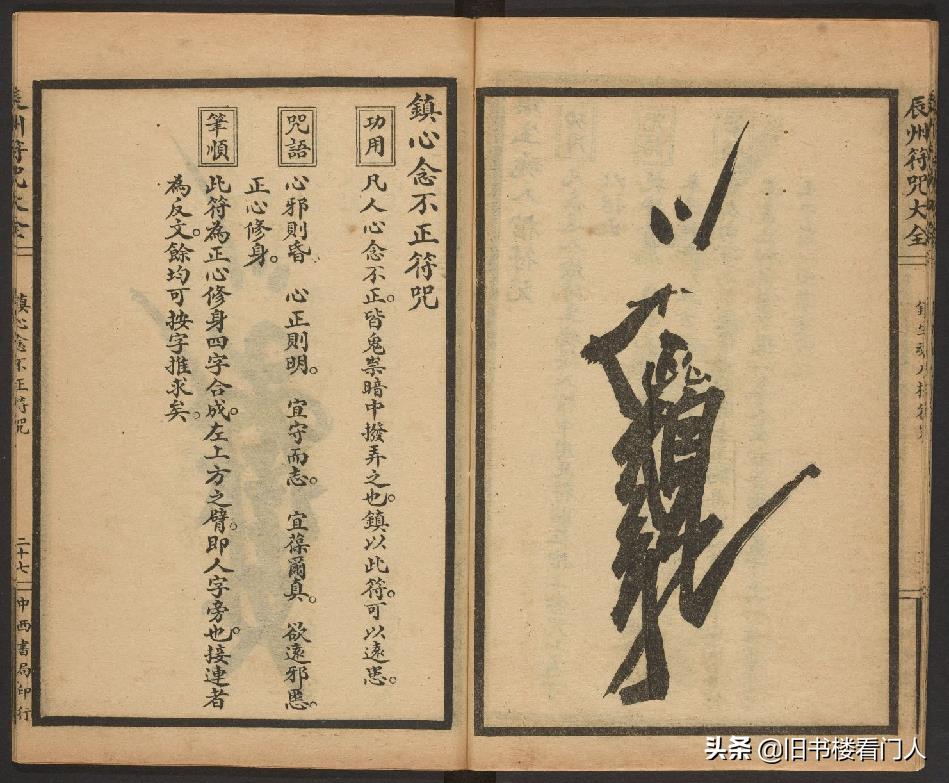 辰州符咒大全
鎮心念不正符咒
功用
凡人心念不正。皆鬼祟暗中撥弄之也。鎮以此符。可以遠思。
咒語
心邪則昏 心正則明。 宜守而志。 宜葆爾真。 欲遠邪思。
正心修身。
筆順
此符為正心修身四字合成。左上方之臂。即人字旁也。接連者
為反文。餘均可按字推求矣。
辰州符咒大全
鎮心念不正符咒
二十七
中西書局印行
头条 @旧书楼看门人